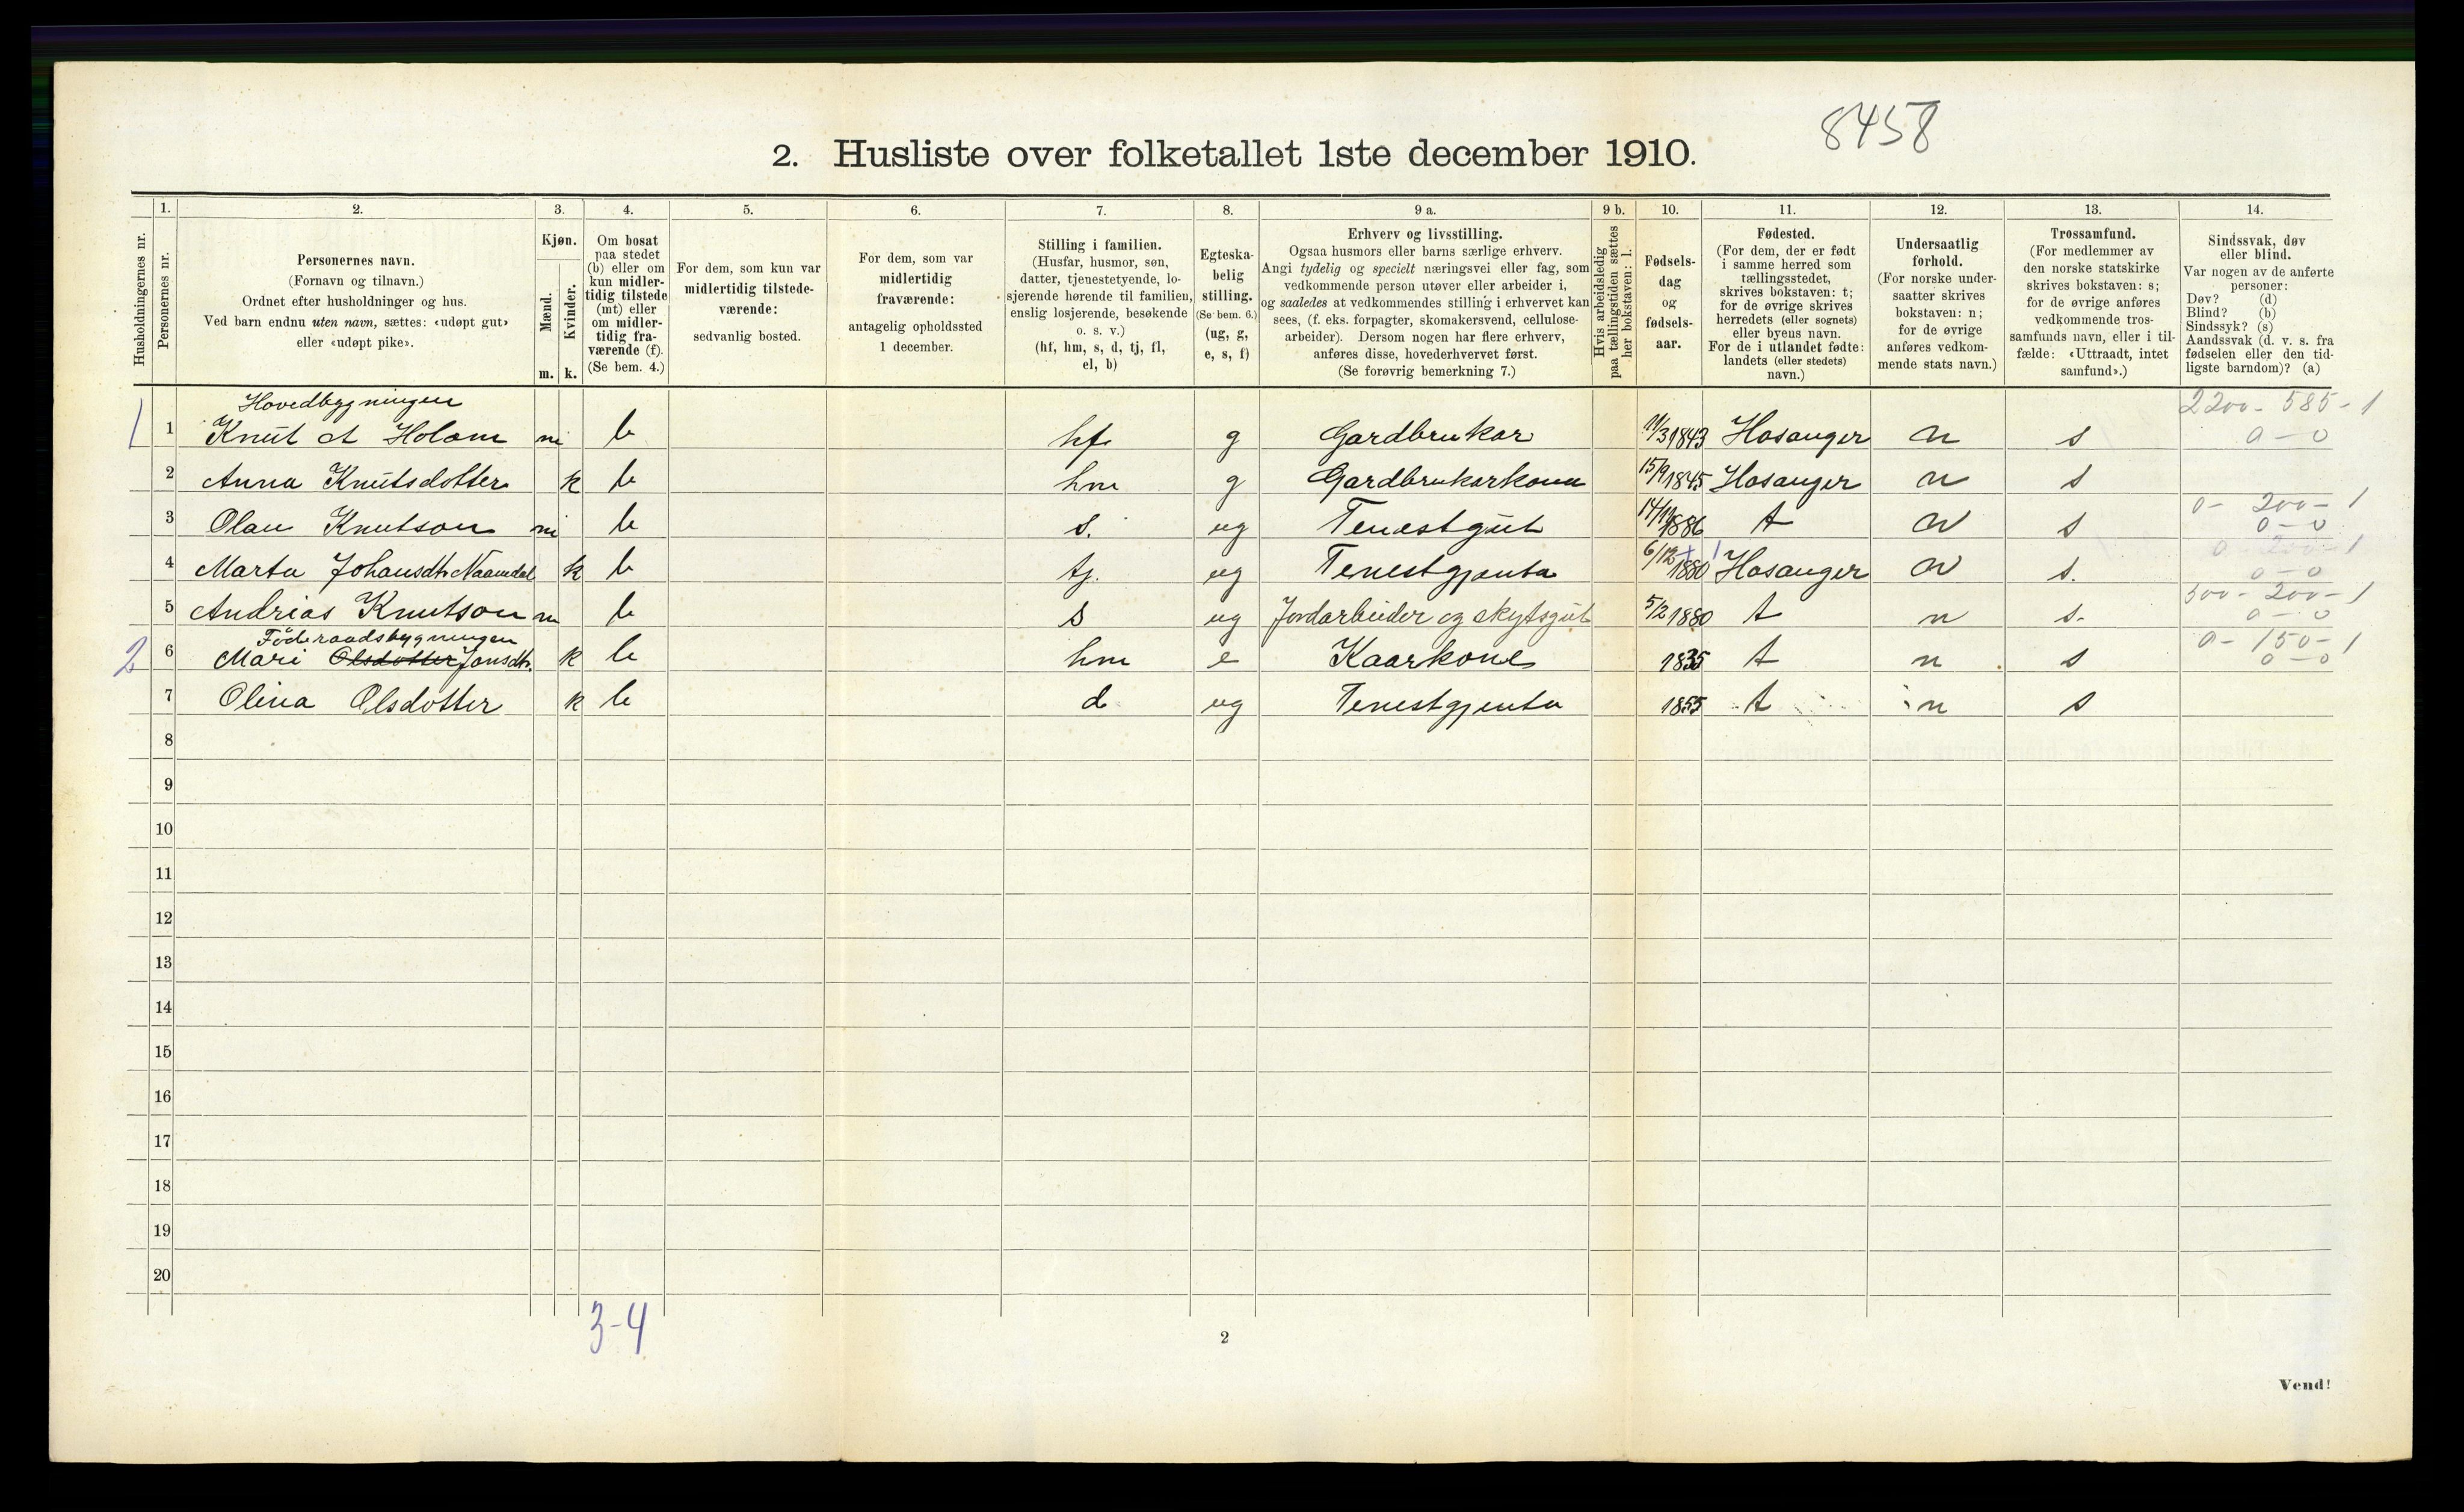 8458
2. Husliste over folketallet 1ste december 1910.
Husholdningernes nr.
1.
Personernes nr.
2.
Personernes navn.
(Fornavn og tilnavn.)
Ordnet efter husholdninger og hus.
Ved barn endnu uten navn, sættes: «udøpt gut»
eller «udøpt pike».
3.
Kjøn.
Mænd.
Kvinder.
m. k.
4.
Om bosat
paa stedet
(b) eller om
kun midler-
tidig tilstede
(mt) eller
om midler-
tidig fra-
værende (f).
(Se bem. 4.)
5.
For dem, som kun var
midlertidig tilstede-
værende:
sedvanlig bosted.
6.
For dem, som var
midlertidig
fraværende:
antagelig opholdssted
1 december.
7.
Stilling i familien.
(Husfar, husmor, søn,
datter, tjenestetyende, lo-
sjerende hørende til familien,
enslig losjerende, besøkende
o. s. v.)
(hf, hm, s, d, tj, fl,
el, b)
8.
Egteska-
belig
stilling.
(Se bem. 6.)
(ug, g,
e, s, f)
9 a.
Erhverv og livsstilling.
Ogsaa husmors eller barns særlige erhverv.
Angi tydelig og specielt næringsvei eller fag, som
vedkommende person utøver eller arbeider i,
og saaledes at vedkommendes stilling i erhvervet kan
sees, (f. eks. forpagter, skomakersvend, cellulose-
arbeider). Dersom nogen har flere erhverv,
anføres disse, hovederhvervet først.
(Se forøvrig bemerkning 7.)
9 b.
Hvis arbeidsledig
paa tællingstiden sættes
her bokstaven: l.
10.
Fødsels-
dag
og
fødsels-
aar.
11.
Fødested.
(For dem, der er født
i samme herred som
tællingsstedet,
skrives bokstaven: t;
for de øvrige skrives
herredets (eller sognets)
eller byens navn.
For de i utlandet fødte:
landets (eller stedets)
navn.)
12.
Undersaatlig
forhold.
(For norske under-
saatter skrives
bokstaven: n;
for de øvrige
anføres vedkom-
mende stats navn.)
13.
Trossamfund.
(For medlemmer av
den norske statskirke
skrives bokstaven: s;
for de øvrige anføres
vedkommende tros-
samfunds navn, eller i til-
fælde: «Uttraadt, intet
samfund».)
14.
Sindssvak, døv
eller blind.
Var nogen av de anførte
personer:
Døv? (d)
Blind? (b)
Sindssyk? (s)
Aandssvak (d. v. s. fra
fødselen eller den tid-
ligste barndom)? (a)
Hovedbygningen 2200 - 585 - 1
1 1 Knut A Holom m b hf g Gardbrukar 11/3 1843 Hosanger n s 0 - 0
2 Anna Knutsdotter k b hm g Gardbrukarkona 15/9 1845 Hosanger n s
0 - 200 - 1
3 Olau Knutson m b s. ug Tenestgut 1886 t n s 0 - 0
0 - 200 - 1
4 Marta Johansdtr Naamdal k b tj. ug Tenestgjenta 6/12 1880 Hosanger n s. 0 - 0
500 - 200 - 1
5 Andrias Knutson m b s ug Jordarbeider og skytsgut 5/2 1880 t n s. 0 - 0
Föderaadsbygningen 0 - 150 - 1
2 6 Mari Olsdotter Jonsdtr. k b hm e Kaarkone 1835 t n s 0 - 0
7 Olina Olsdotter k b d ug Tenestgjenta 1855 t n s
8
9
10
11
12
13
14
15
16
17
18
19
20
3-4
2
Vend!